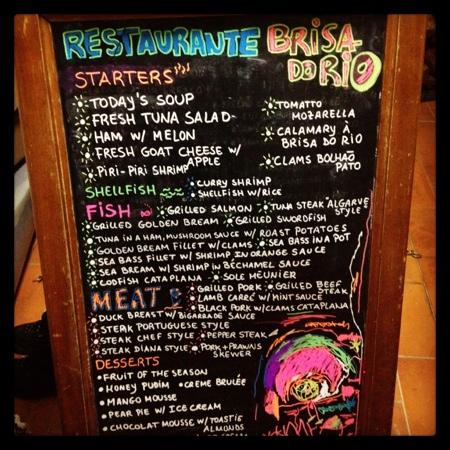 RESTAURANTE BRISA DO RIO
STARTERS
TODAY'S SOUP
FRESH TUNA SALAD
HAM W/ MELON
FRESH GOAT CHEESE W/ APPLE
PIRI-PIRI SHRIMP
TOMATTO MOZARELLA
CALAMARY À BRISA DO RIO
CLAMS BOLHÃO PATO
SHELLFISH
CURRY SHRIMP
SHELLFISH W/ RICE
FISH
GRILLED SALMON
TUNA STEAK ALGARVE STYLE
GRILLED GOLDEN BREAM
GRILLED SWORDFISH
TUNA IN A HAM, MUSHROOM SAUCE W/ ROAST POTATOES
GOLDEN BREAM FILLET W/ CLAMS
SEA BASS IN A POT
SEA BASS FILLET W/ SHRIMP IN ORANGE SAUCE
SEA BREAM W/ SHRIMP IN BÉCHAMEL SAUCE
CODFISH CATAPLANA
SOLE MEUNIER
MEAT
GRILLED PORK
GRILLED BEEF STEAK
LAMB CARRÉ W/ MINT SAUCE
BLACK PORK W/ CLAMS CATAPLANA
DUCK BREAST W/ BIGARRADE SAUCE
STEAK PORTUGUESE STYLE
STEAK CHEF STYLE
PEPPER STEAK
STEAK DIANA STYLE
PORK + PRAWNS SKEWER
DESSERTS
FRUIT OF THE SEASON
HONEY PUDIM
CREME BRULÉE
MANGO MOUSSE
PEAR PIE W/ ICE CREAM
CHOCOLAT MOUSSE W/ TOASTIE ALMONDS